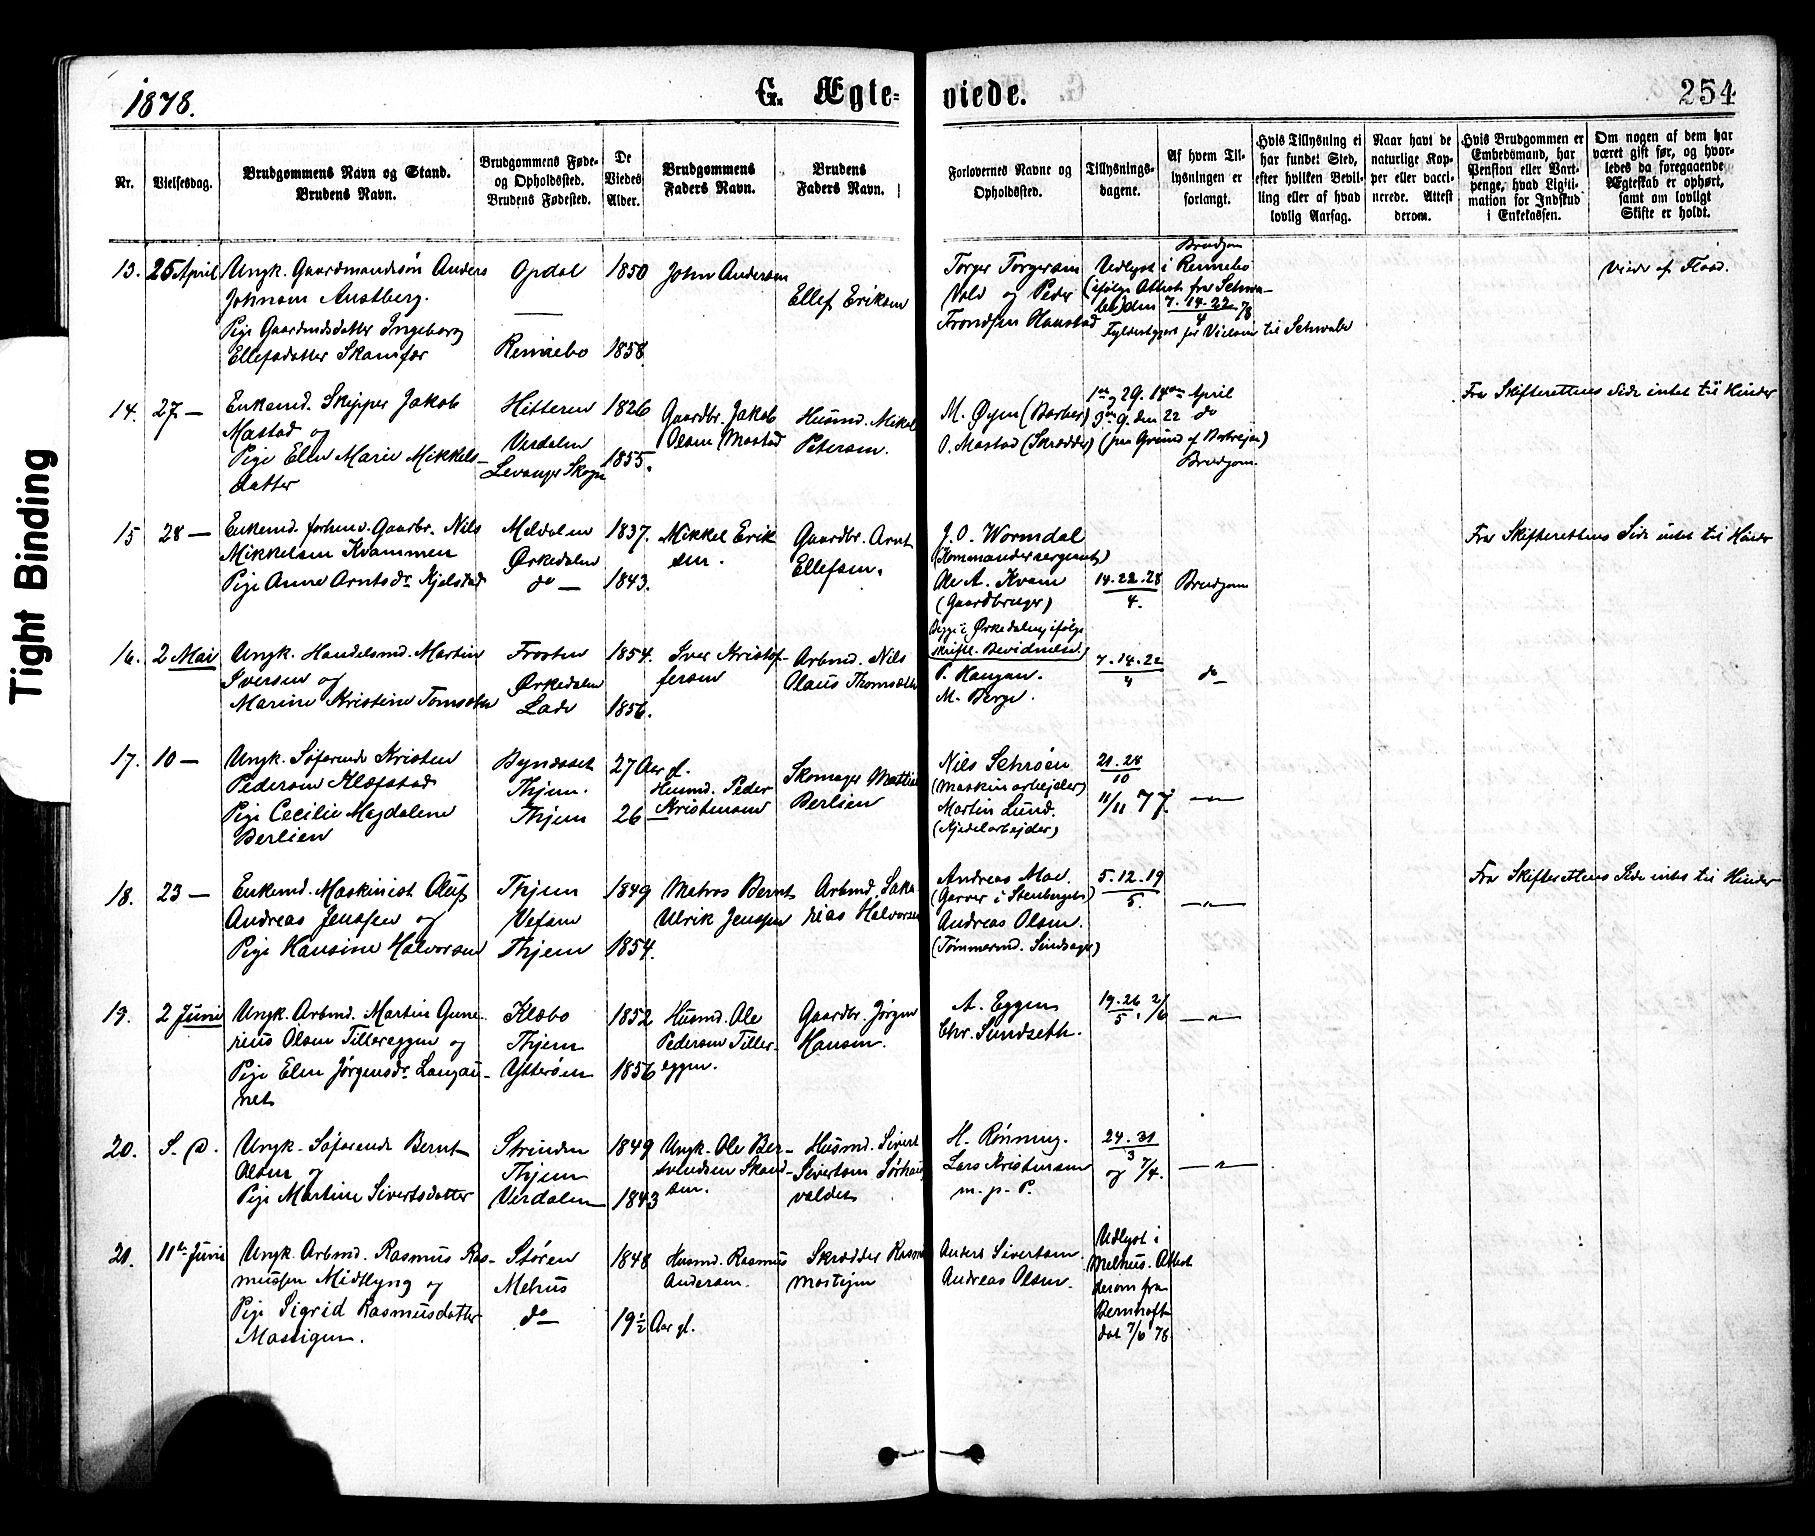 1878.
G. Ægte=
viede.
254
Nr.
Vielsesdag.
Brudgommens Navn og Stand.
Brudens Navn.
Brudgommens Føde-
og Opholdssted.
Brudens Fødested.
De
Viedes
Alder.
Brudgommens
Faders Navn.
Brudens
Faders Navn.
Forlovernes Navne og
Opholdssted.
Tillysnings-
dagene.
Af hvem Til-
lysningen er
forlangt.
Hvis Tillysning ei
har fundet Sted,
efter hvilken Bevil-
ling eller af hvad
lovlig Aarsag.
Naar havt de
naturlige Kop-
per eller vacci-
nerede. Attest
derom.
Hvis Brudgommen er
Embedsmand, har
Pension eller Vart-
penge, hvad Ligiti-
mation for Indskud
i Enkekassen.
Om nogen af dem har
været gift før, og hvor-
ledes da foregaaende
Ægteskab er ophørt,
samt om lovligt
Skifte er holdt.
13. 25 April
Ungk. Gaardmandssøn Anders
Johnsen Austberg.
Pige Gaardmdsdatter Ingeborg
Ellefsdatter Skamfær
Opdal
Rennebo
1850
1858.
John Andersen
Ellef Eriksen
Torger Torgersen
Vold og Peder
Trondsen Haustad
Udlyst i Rennebo
(ifølge Attest fra Schwa-
be) den 7.14.22/4 78
Fyldestgjort før Vielsen til Schwabe
Brudgom
viede af Flood.
14. 27 —
Enkemd. Skipper Jakob
Mastad og
Pige Elen Marie Mikkels-
datter
Hitteren
Verdalen
Levanger Skogn
1826
1855.
Gaardbr. Jakob
Olsen Mastad
Husmd. Mikal
Petersen.
M. Øyen (Barber)
O. Mastad (Skrædder)
1ste g. 14de April
3die g. den 22 do
(paa Grund af Bortrejse)
Brudgom.
Fra Skifterettens Side intet til Hinder
15 28 —
Enkemd. forhenv. Gaardbr. Nils
Mikkelsen Kvammen
Pige Anne Arntsdr. Kjelstad
Meldalen
Ørkedalen
do —
1837.
1843.
Mikkel Erik
sen.
Gaardbr. Arnt
Ellefsen.
J. O. Wormdal
(Kommandersergeant)
Ole A. Kvam
(Gaardbruger)
Begge i Ørkedalen, ifølge
skriftl. Bevidnelse
14.22.28
4.
Brudgom
Fra Skifterettens Side intet til Hinder
16. 2 Mai
Ungk. Handelsmd. Martin
Iversen og
Marine Kristine Tomsdtr
Frosten
Ørkedalen
Lade
1854.
1856.
Iver Kristof-
fersen
Arbmd. Nils
Olaus
P. Haugan.
M. Berge.
7.14.22
4
do
17. 10 —
Ungk. Søfarende Kristen
Pedersen Klæfstad
Pige Cecilie Magdalene
Berlien
Bynesset
Thjem.
Thjem
27 Aar gl.
26 —
Husmd. Peder
Kristensen
Skomager Mattias
Berlien
Nils Schrøen
(Maskinarbejder)
Martin Lund.
(Kjedelarbejder)
21.28
10
11/11 77.
—"—
18. 23 —
Enkemd. Maskinist Oluf
Andreas Jenssen og
Pige Hansine Halvorsen
Thjem
Vefsen
Thjem
1849
1854.
Matros Bernt
Ulrik Jenssen
Arbmd. Saka
rias Halvorsen
Andreas Moe.
(Garver i Stenberget)
Andreas Olsen.
(Tømmermd. )
5.12.19
5.
—"—
Fra Skifterettens Side intet til Hinder
19. 2 Juni
Ungk. Arbmd. Martin Gune-
rius Olsen Tillereggen og
Pige Elen Jørgensdr. Langau-
net
Klæbo
Thjem
Ytterøen
1852
1856
Husmd. Ole
Pedersen Tiller-
eggen.
Gaardbr. Jørgen
Hansen.
A. Eggen
Chr. Sundseth.
19.26
5. 2/6
—"—
20. S. D.
Ungk. Søfarende Bernt
Olsen og
Pige Martine Sivertsdatter
Strinden
Thjem
Verdalen
1849
1843
Ungk. Ole Ber-
Husmd. Sivert
Sivertsen
valdet
H. Rønning.
Lars Kristensen
m. p. P.
24.31
3
og 7/4.
—"—
21. 11te Juni
Ungk. Arbmd. Rasmus Ras-
mussen Midtlyng og
Pige Sigrid Rasmusdatter
Mostigen.
Støren
Melhus
do
1848
19 1/2 Aar gl.
Husmd. Rasmus
Andersen.
Skrædder Rasm
Mostigen
Anders Sivertsen.
Andreas Olsen.
Udlyst i
Melhus. Attest
derom fra
Bernhoft
dat 7/6 78.
Tight Binding